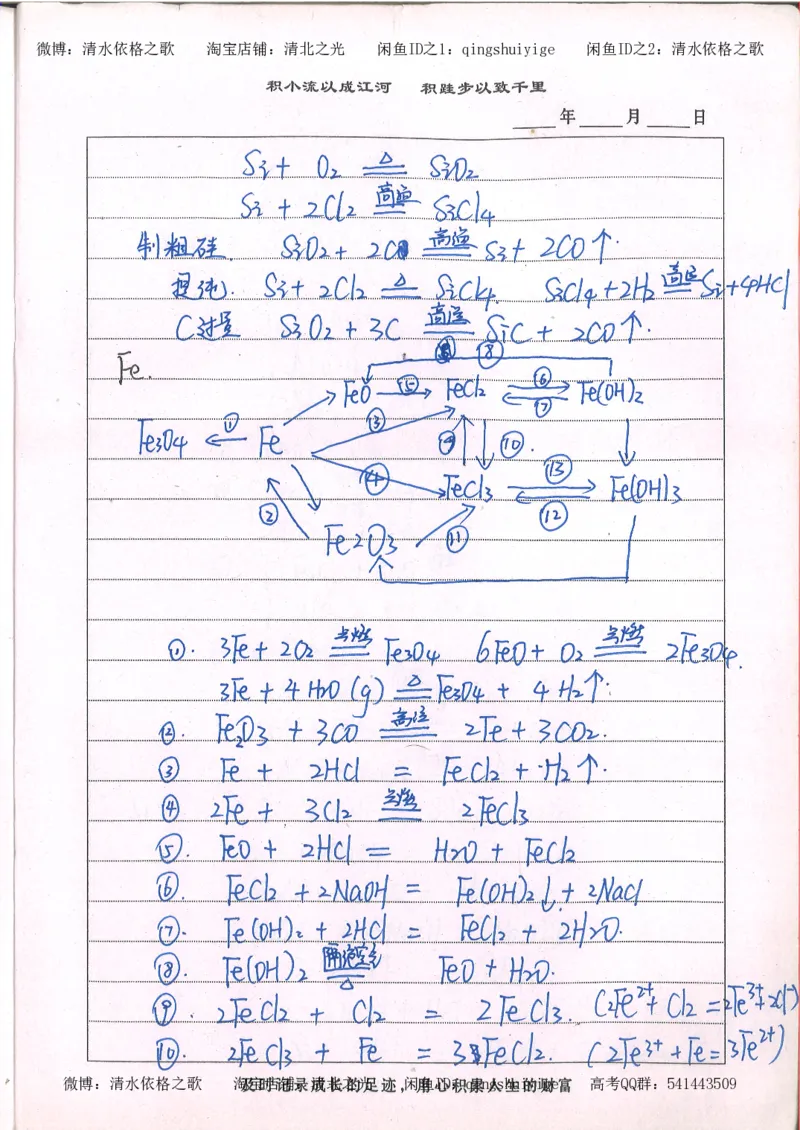 微博：清水依格之歌 淘宝店铺：清北之光 闲鱼ID之1：qingshuiyige 闲鱼ID之2：清水依格之歌
积小流以成江河 积跬步以致千里
年 月 日
Si + O2 =△= SiO2
Si + 2Cl2 =高温= SiCl4
制粗硅. SiO2 + 2C =高温= Si + 2CO↑.
提纯. Si + 2Cl2 =△= SiCl4. SiCl4 + 2H2 =高温= Si + 4HCl
C过量 SiO2 + 3C =高温= SiC + 2CO↑.
Fe.
⑧
FeO ⑤ FeCl2 ⑥ ⑦ Fe(OH)2
Fe3O4 ① Fe ③ ⑨ ⑩.
④ FeCl3 ⑬ ⑫ Fe(OH)3
② Fe2O3 ⑪
①. 3Fe + 2O2 =点燃= Fe3O4 6FeO + O2 =点燃= 2Fe3O4.
3Fe + 4H2O(g) =△= Fe3O4 + 4H2↑.
②. Fe2O3 + 3CO =高温= 2Fe + 3CO2.
③ Fe + 2HCl = FeCl2 + H2↑.
④ 2Fe + 3Cl2 =点燃= 2FeCl3
⑤. FeO + 2HCl = H2O + FeCl2
⑥. FeCl2 + 2NaOH = Fe(OH)2↓ + 2NaCl
⑦. Fe(OH)2 + 2HCl = FeCl2 + 2H2O.
⑧. Fe(OH)2 =隔绝空气△= FeO + H2O.
⑨. 2FeCl2 + Cl2 = 2FeCl3. (2Fe2+ + Cl2 = 2Fe3+ + 2Cl-)
⑩. 2FeCl3 + Fe = 3FeCl2. (2Fe3+ + Fe = 3Fe2+)
微博：清水依格之歌 淘宝店铺：清北之光 闲鱼ID：qingshuiyige 高考QQ群：541443509
及时记录成长的足迹，用心积累人生的财富